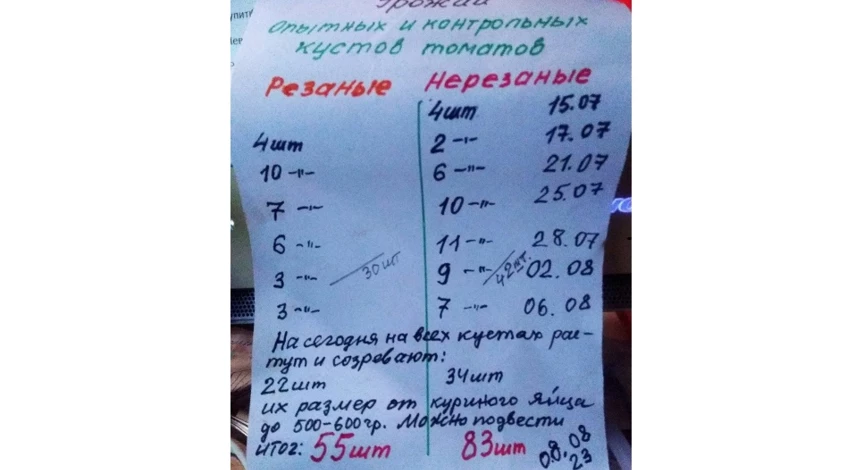 Урожай
опытных и контрольных
кустов томатов
Резаные Нерезаные
4шт 15.07
4шт 2 -"- 17.07
10 -"- 6 -"- 21.07
7 -"- 10 -"- 25.07
6 -"- 11 -"- 28.07
3 -"- 30шт 9 -"- 42шт. 02.08
3 -"- 7 -"- 06.08
На сегодня на всех кустах рас-
тут и созревают:
22шт 34шт
их размер от куриного яйца
до 500-600гр. Можно подвести
итог: 55шт 83шт 08.08
23